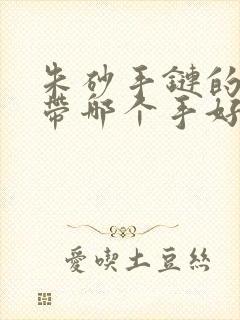 朱砂手鏈的
帶哪个手好
愛喫土豆絲